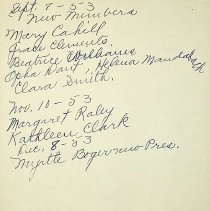 Sept. 8-53
New Members
Mary Cahill
Grace Clements,
Beatrice Williams
Opha Hart, Helena
Clara Smith.
Nov. 10-53
Margaret Raley
Kathleen Clark
Dec. 8-53
Myrtle Boger new Pres.